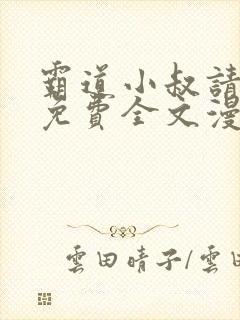 霸道小叔請
免費全文漫
雲田晴子/雲田